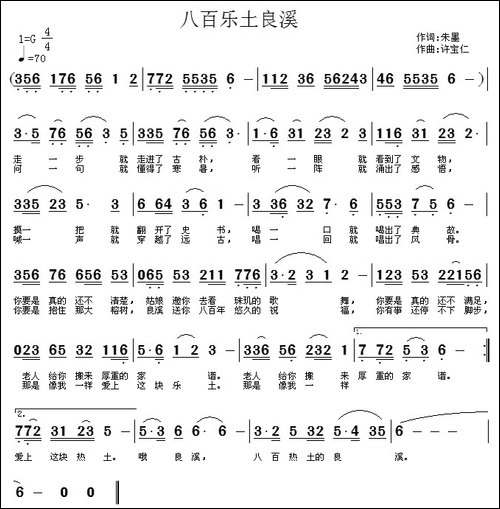 八百乐土良溪
1=G 4/4
作词:朱墨
♩=70
作曲:许宝仁
(356 176 56 1 2 | 772 5535 6 - | 112 36 56243 | 46 5535 6 - ) |
3·5 76 56 3 5 | 335 76 56 3 - | 1·6 31 23 2 3 | 116 31 23 2 - |
走 一 步 就 走进了 古 朴, 看 一 眼 就 看到了 文 物,
问 一 句 就 懂得了 寒 暑, 听 一 阵 就 涌出了 感 悟,
335 23 5· 3 | 6 64 3 6 - | 3 36 32 7· 6 | 553 7 5 6 - |
摸一 把 就 翻开了 史 书, 唱一 口 就 唱出了 典 故。
喊一 声 就 穿越了 远 古, 唱一 回 就 唱出了 风 骨。
356 76 656 53 | 065 53 211 776 | 3·2 3 1 - | 123 53 22156 |
你要是 真的 还不 清楚, 姑娘 邀你 去看 珠玑的 歌 舞, 你要是 真的 还不 满足,
你要是 抱住 那大 榕树, 良溪 送你 八百年 悠久的 祝 福, 你有事 还停 不下 脚步,
023 65 32 116 | 5·6 1 2 3 - | 336 56 232 1 | 1. 7 72 5 3 6 - :|
老人 给你 搬来 厚重的 家 谱。 老人 给你 搬来 厚重的 家 谱。
那是 像我 一样 爱上 这块 乐 土。 那是 像我 一 样
2. 772 31 23 5 - | 5·3 6 6 - | 3·2 5 32 5·4 35 | 6 - - - |
爱上 这块 热 土。 哦 良 溪, 八 百 热土的 良 溪。
6 - 0 0 ‖